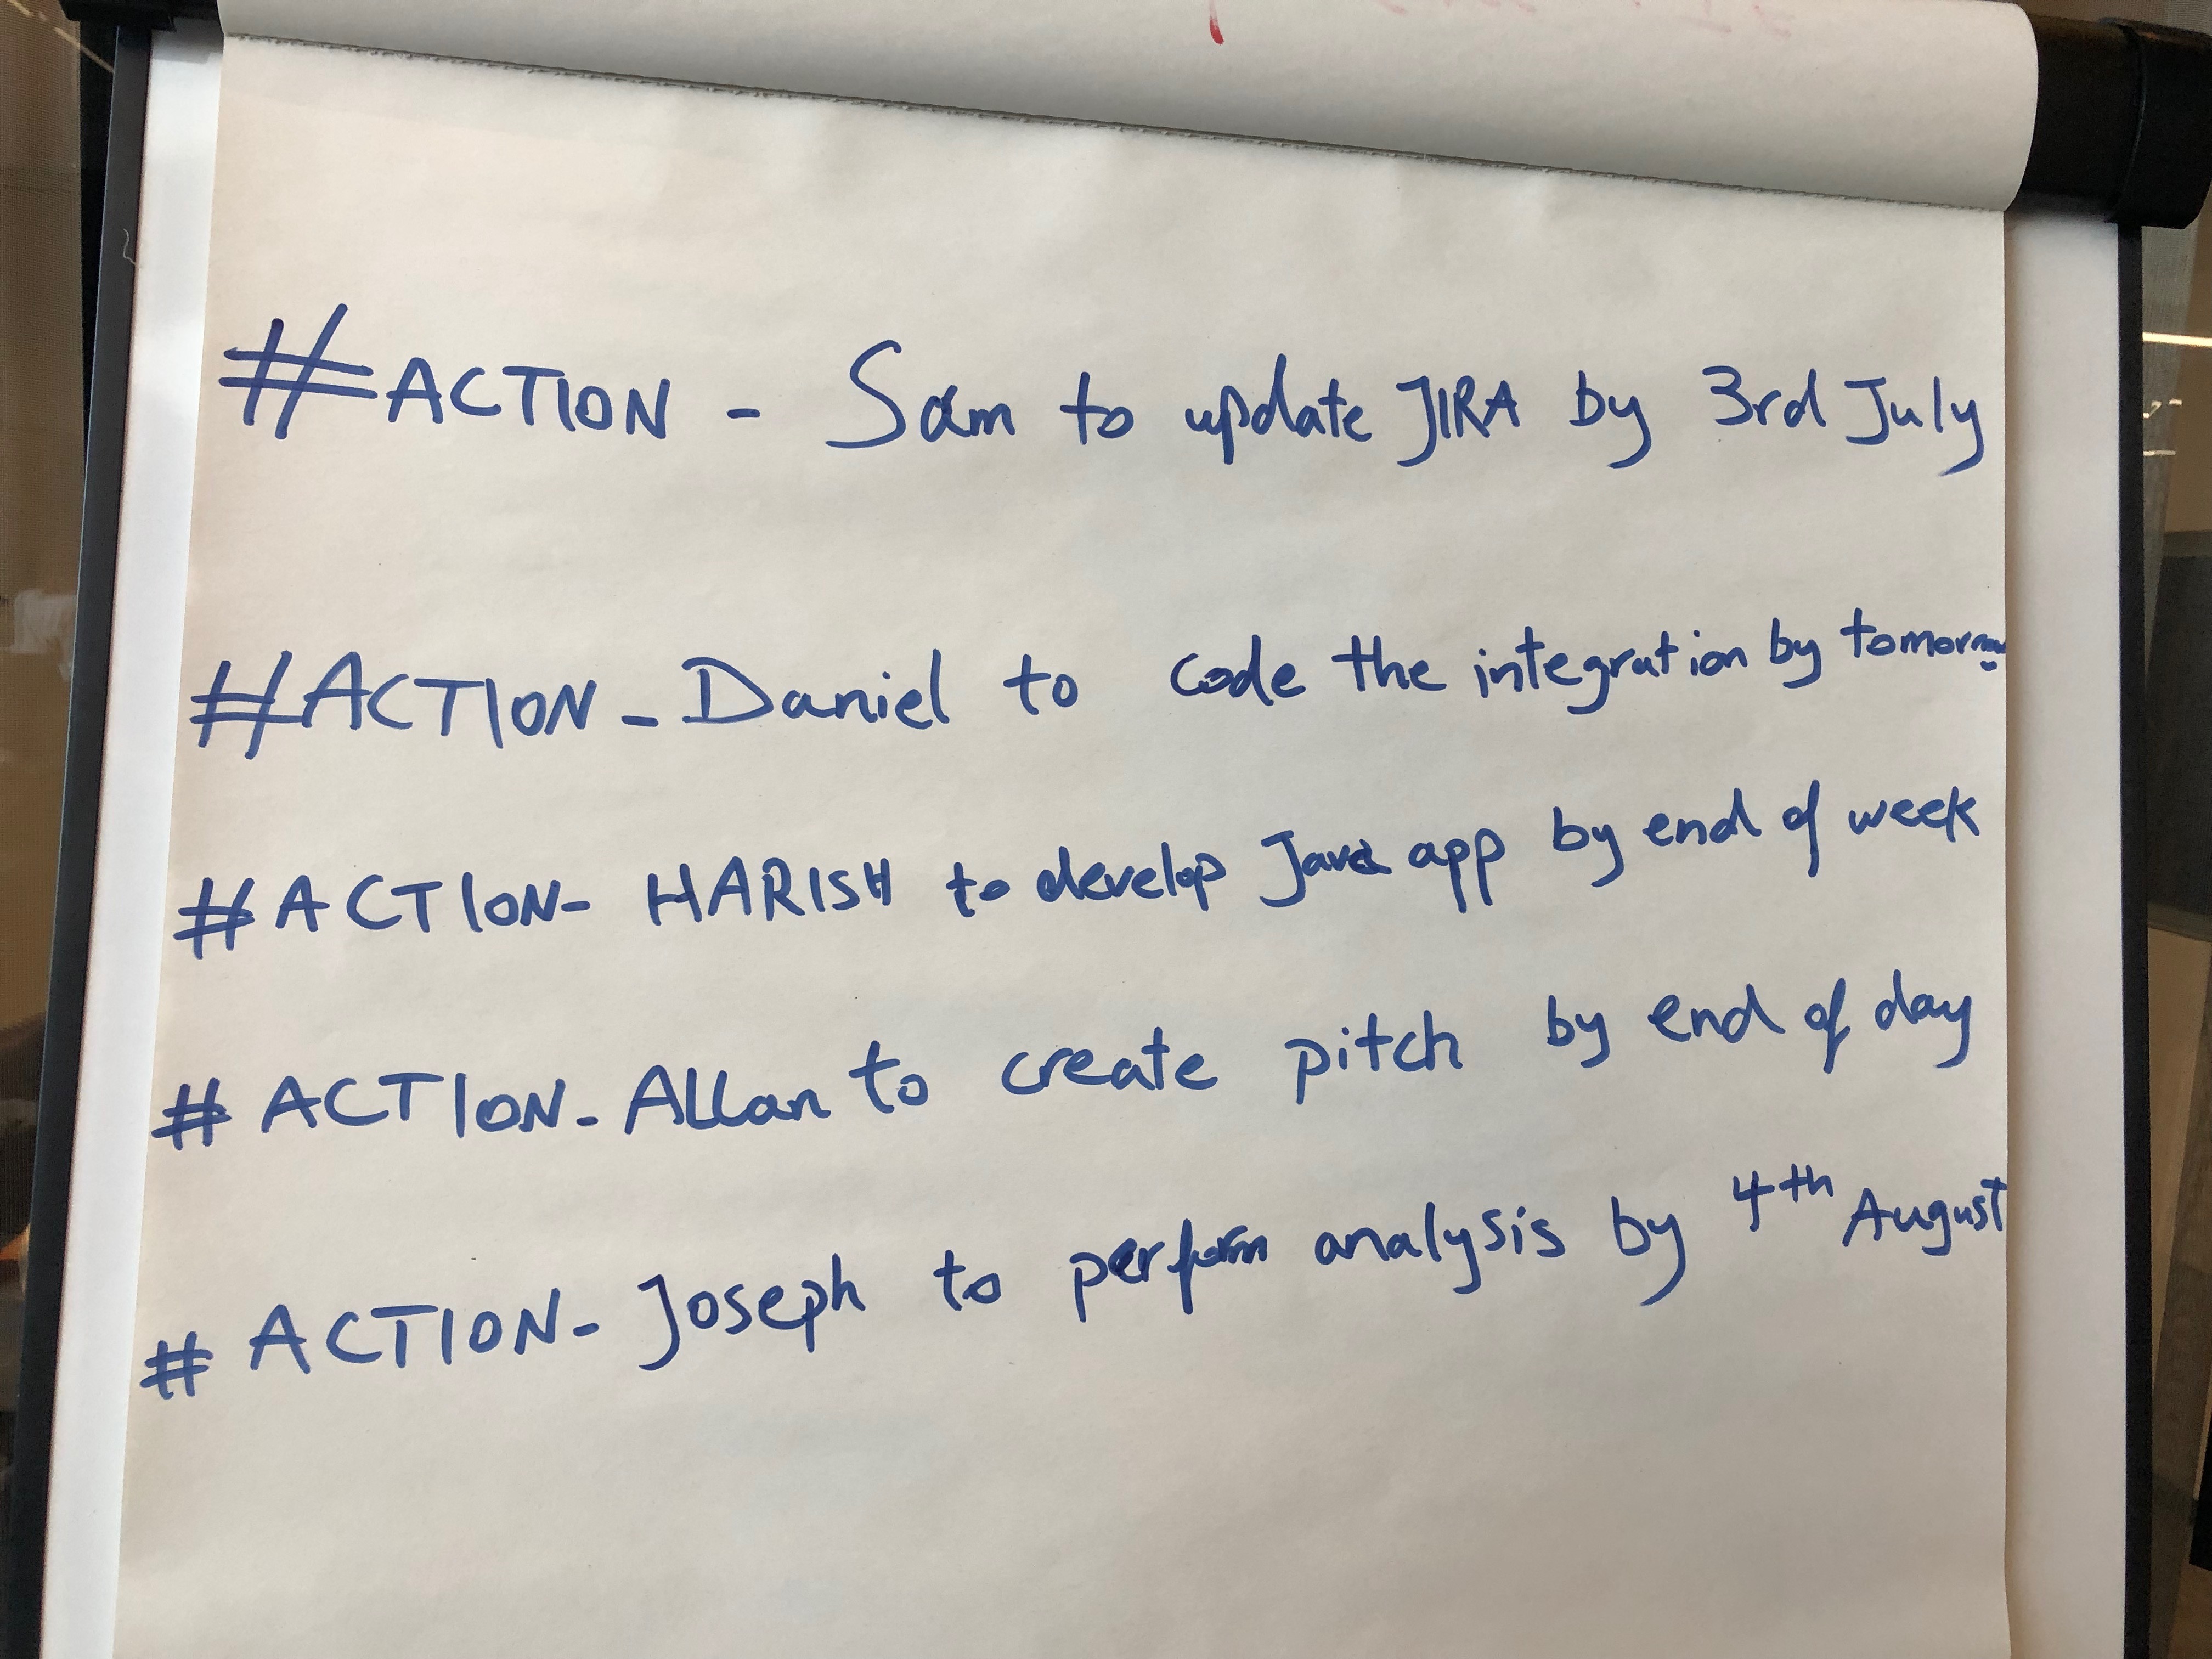 #ACTION - Sam to update JIRA by 3rd July
#ACTION - Daniel to code the integration by tomorrow
#ACTION - HARISH to develop Java app by end of week
# ACTION - Allan to create pitch by end of day
# ACTION - Joseph to perform analysis by 4th August